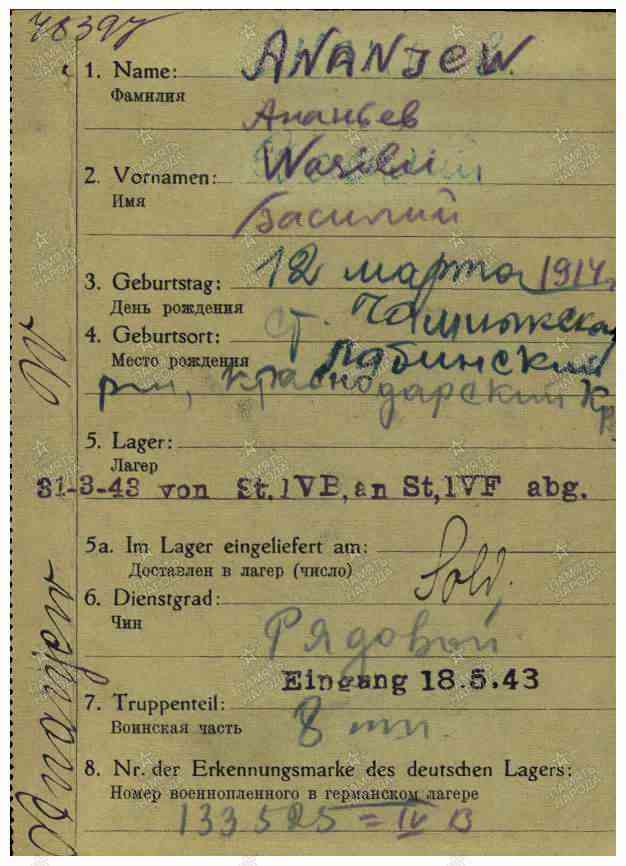 78397
1. Name: ANANJEW.
Фамилия
Ананьев
2. Vornamen: Wasilii
Имя
Василий
3. Geburtstag: 12 марта 1914
День рождения
4. Geburtsort: ст.
Место рождения Лабинский
рн, Краснодарский Кр
5. Lager:
Лагер
31-3-43 von St.IVB, an St,IVF abg.
5a. Im Lager eingeliefert am:
Доставлен в лагер (число)
6. Dienstgrad: Sold.
Чин
Рядовой
Eingang 18.5.43
7. Truppenteil:
Воинская часть 8
8. Nr. der Erkennungsmarke des deutschen Lagers:
Номер военнопленного в германском лагере
133525 = IV B
Ananjew W